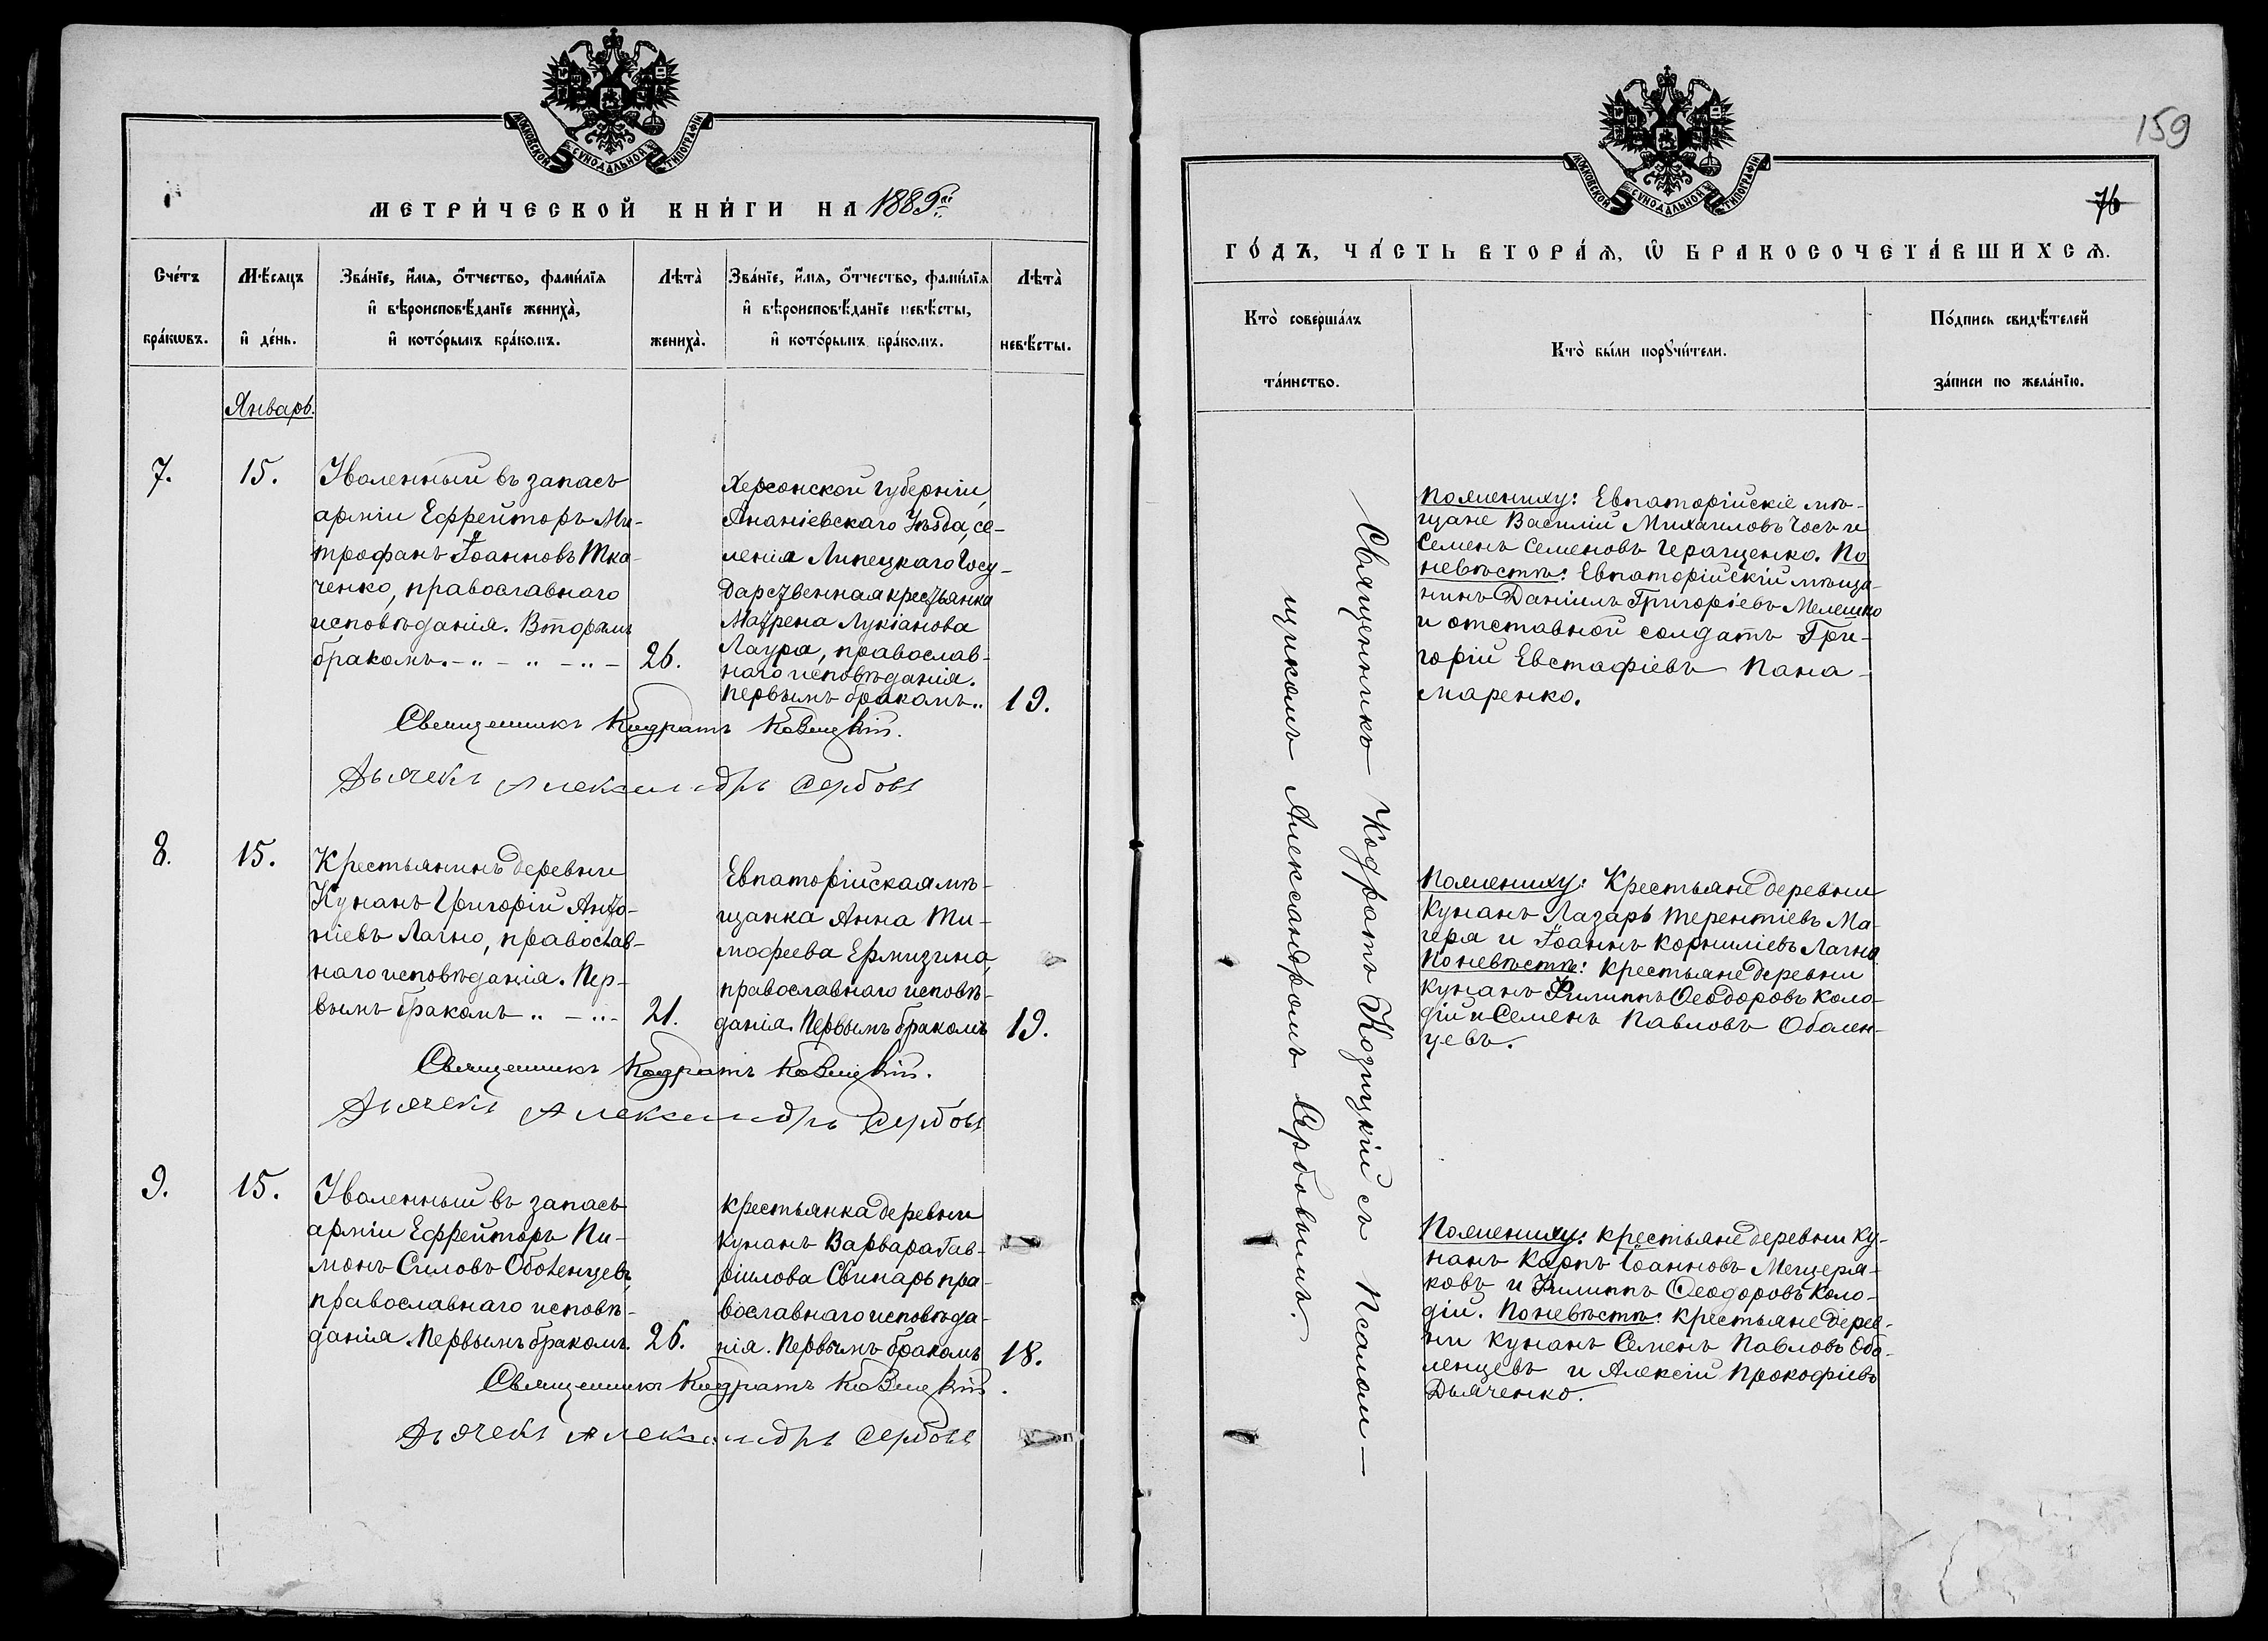 МОСКОВСКОЙ СѴНОДАЛЬНОЙ ТИПОГРАФІИ
МЕТРИ́ЧЕСКОЙ КНИ́ГИ НА 1885й
Сче́тъ бра́кωвъ.
Мѣ́сяцъ и҆ де́нь.
Зва́нїе, и҆́мѧ, ѻ҆́тчество, фами́лїѧ
и҆ вѣроисповѣ́данїе жениха̀,
и҆ кото́рымъ бра́комъ.
Лѣта̀
жениха̀.
Зва́нїе, и҆́мѧ, ѻ҆́тчество, фами́лїѧ
и҆ вѣроисповѣ́данїе невѣ́сты,
и҆ кото́рымъ бра́комъ.
Лѣта̀
невѣ́сты.
Январь.
7.
15.
Уволенный въ запасъ
арміи Ефрейторъ Ми-
трофанъ Іоанновъ Тка-
ченко, православнаго
исповѣданія. Вторымъ
бракомъ.-"-"-"-
26.
Херсонской губерніи,
Ананіевскаго Уѣзда, се-
ленія Липецкаго Госу-
дарственная крестьянка
Матрена Лукіанова
Лаура, православ-
наго исповѣданія.
Первымъ бракомъ..
19.
Священникъ Кодратъ Козицкій.
Дьячекъ Александръ Сербовъ
8.
15.
Крестьянинъ деревни
Кунанъ Григорій Анто-
ніевъ Лагно, православ-
наго исповѣданія. Пер-
вымъ бракомъ " - " -
21.
Евпаторійская мѣ-
щанка Анна Ти-
мофеева Ермизина,
православнаго исповѣ-
данія. Первымъ бракомъ
19.
Священникъ Кодратъ Козицкій.
Дьячекъ Александръ Сербовъ
9.
15.
Уволенный въ запасъ
арміи Ефрейторъ Пи-
монъ Силовъ Оболенцевъ,
православнаго исповѣ-
данія. Первымъ бракомъ.
26.
крестьянка деревни
Кунанъ Варвара Гав-
ріилова Свинарь пра-
вославнаго исповѣда-
нія. Первымъ бракомъ
18.
Священникъ Кодратъ Козицкій.
Дьячекъ Александръ Сербовъ
159
76
МОСКОВСКОЙ СѴНОДАЛЬНОЙ ТИПОГРАФІИ
ГО́ДЪ, ЧА́СТЬ ВТОРА́Ѧ, Ѽ БРАКОСОЧЕТА́ВШИХСѦ.
Кто̀ соверша́лъ
та́инство.
Кто̀ бы́ли порꙋчи́тели.
По́дпись свидѣ́телей
за́писи по жела́нїю.
Священникъ Кодратъ Козицкій съ Псалом-
щикомъ Александромъ Сербовымъ.
По жениху: Евпаторійскіе мѣ-
щане Василій Михаиловъ Чосъ и
Семенъ Семеновъ Геращенко. По
невѣстѣ: Евпаторійскій мѣща-
нинъ Даніилъ Григоріевъ Мелешко
и отставной солдатъ Гри-
горій Евстафіевъ Пана-
маренко.
По жениху: Крестьяне деревни
Кунанъ Лазарь Терентіевъ Ма-
гера и Іоаннъ Корниліевъ Лагно
По невѣстѣ: крестьяне деревни
Кунанъ Филиппъ Ѳеодоровъ Коло-
дій и Семенъ Павловъ Оболен-
цевъ.
По жениху: крестьяне деревни Ку-
нанъ Карпъ Іоанновъ Мещеря-
ковъ и Филиппъ Ѳеодоровъ Коло-
дій. По невѣстѣ: крестьяне дерев-
ни Кунанъ Семенъ Павловъ Обо-
ленцевъ и Алексій Прокофіевъ
Дьяченко.